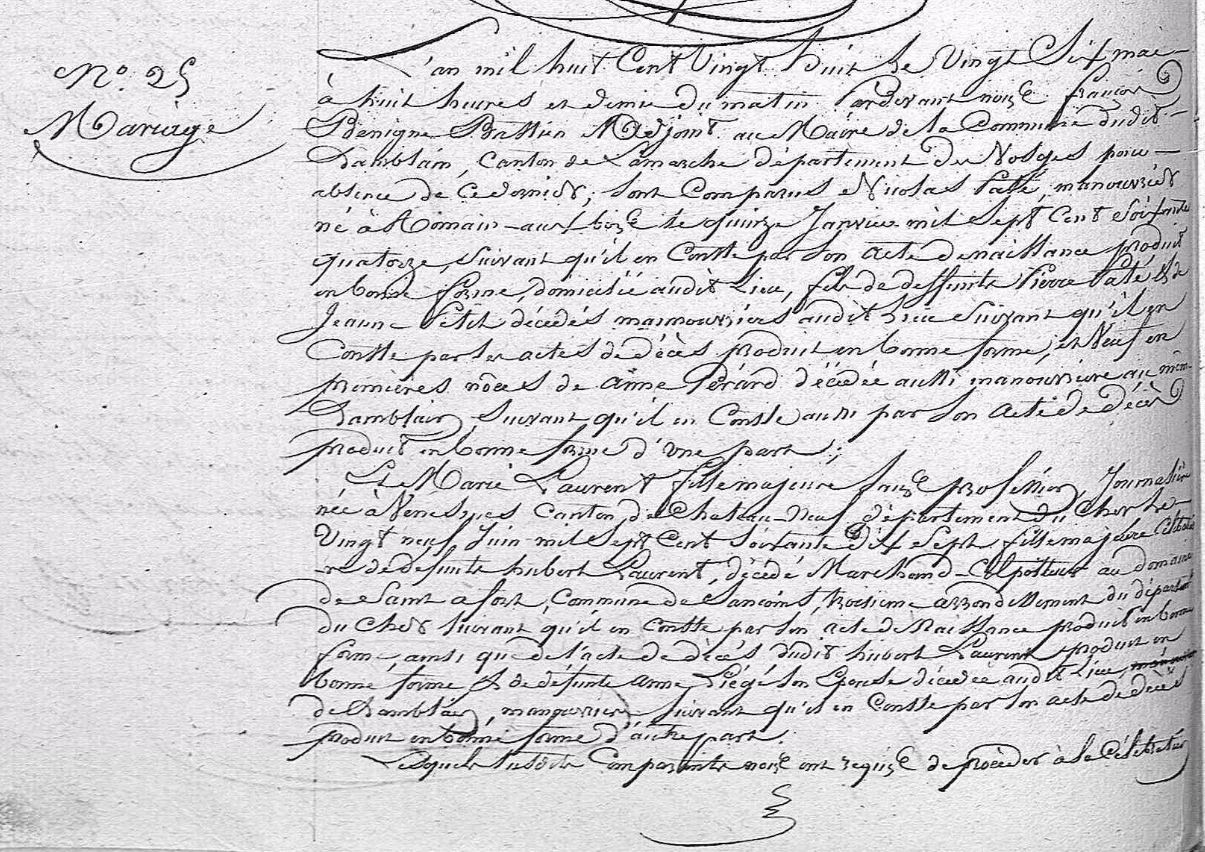 N.º 25
Mariage
L'an mil huit Cent Vingt huit le Vingt Six mai
à huit heures et demie du matin Pardevant nous françois
Benigne Adjoint au Maire de la Commune dudit
Damblain, Canton de Lamarche département des Vosges pour
absence de Ce dernier, sont Comparus Nicolas Paté, manouvrier
né à Romain-aux-bois le quinze Janvier mil Sept Cent Soixante
quatorze, suivant qu'il en Conste par son acte de naissance produit
en bonne forme, domicilié audit Lieu, fils de deffunts Pierre Paté & de
Jeanne Petit décédés manouvriers audit Lieu suivant qu'il en
Conste par les actes de décès produit en bonne forme, et Veuf en
premières nôces de anne Pérard décédée aussi manouvrière au
Damblain, suivant qu'il en Conste aussi par son acte de décès
produit en bonne forme d'une part;
Et Marie Laurent fille majeure sans profession Journalière
née à Canton de Chateau-Neuf département du Cher le
Vingt neuf Juin mil Sept Cent Soixante dix Sept, fille majeure
-re de défunts hubert Laurent, décédé Marchand-Colporteur au domaine
de Saint, Commune de Sancoins, troisieme arrondissement du départment
du Cher suivant qu'il en Conste par son acte de Naissance produit en bonne
forme, ainsi que de l'acte de décès dudit hubert Laurent produit en
bonne forme & de défunte anne Liégé son Epouse décédée audit Lieu
de Damblain, manouvrière suivant qu'il en Conste par son acte de décès
produit en bonne forme d'autre part.
Lesquels susdits Comparants nous ont requis de procéder à la Célébration